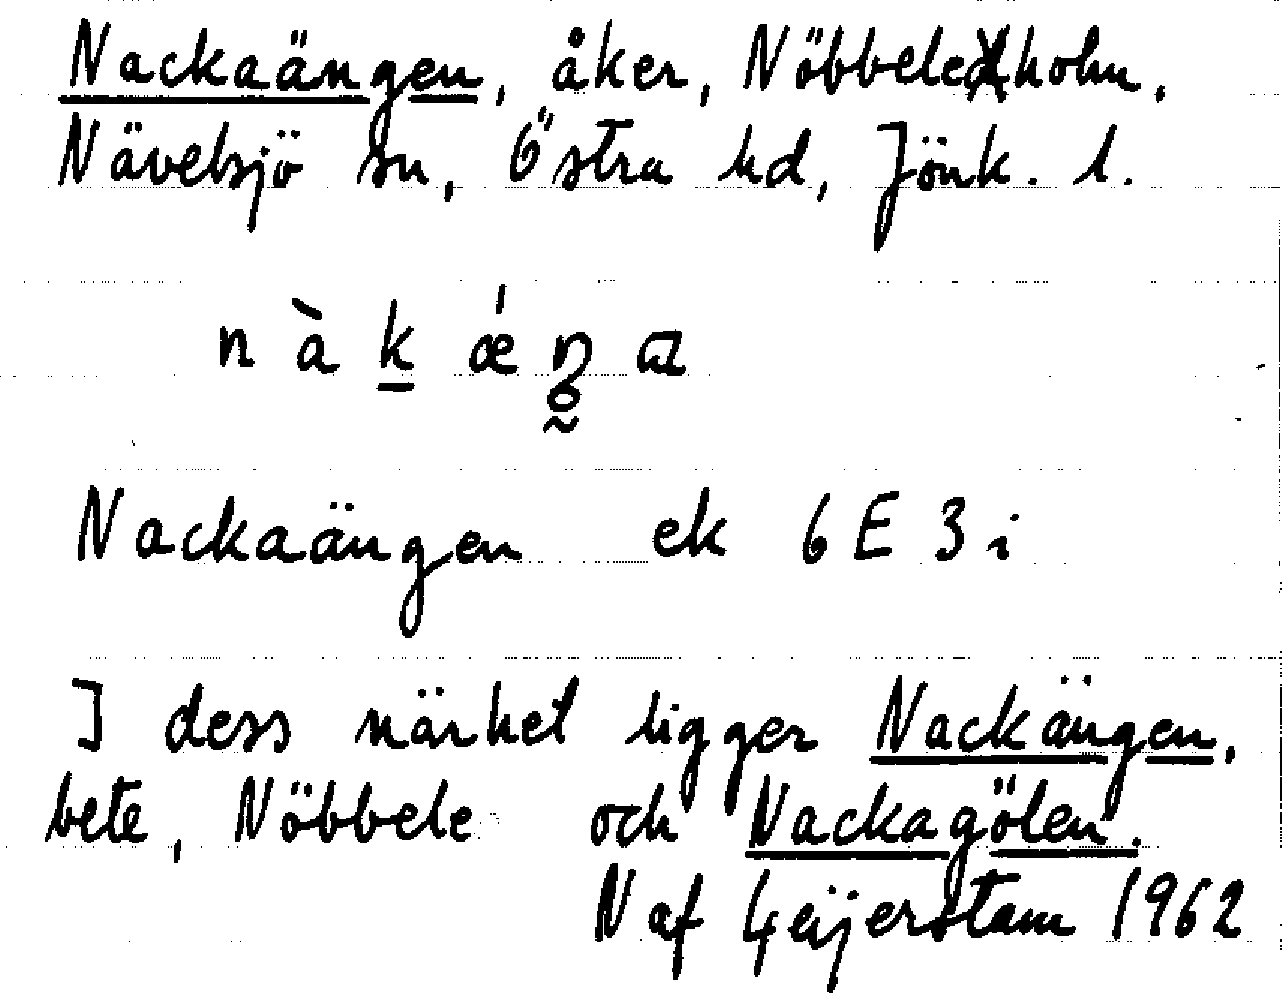 Nackaängen, åker, Nöbbeleholm,
Nävelsjö sn, Östra hd, Jönk. l.
Nackaängen ek 6E3i
I dess närhet ligger Nackängen,
bete, Nöbbele och Nackagölen.
N af Geijerstam 1962